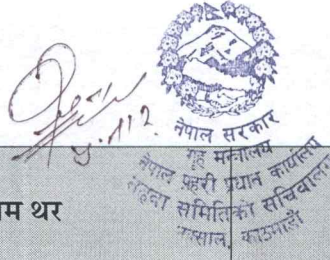 नेपाल सरकार
गृह मन्त्रालय
नेपाल प्रहरी प्रधान कार्यालय
समितिको सचिवालय
नक्साल, काठमाडौं
म थर